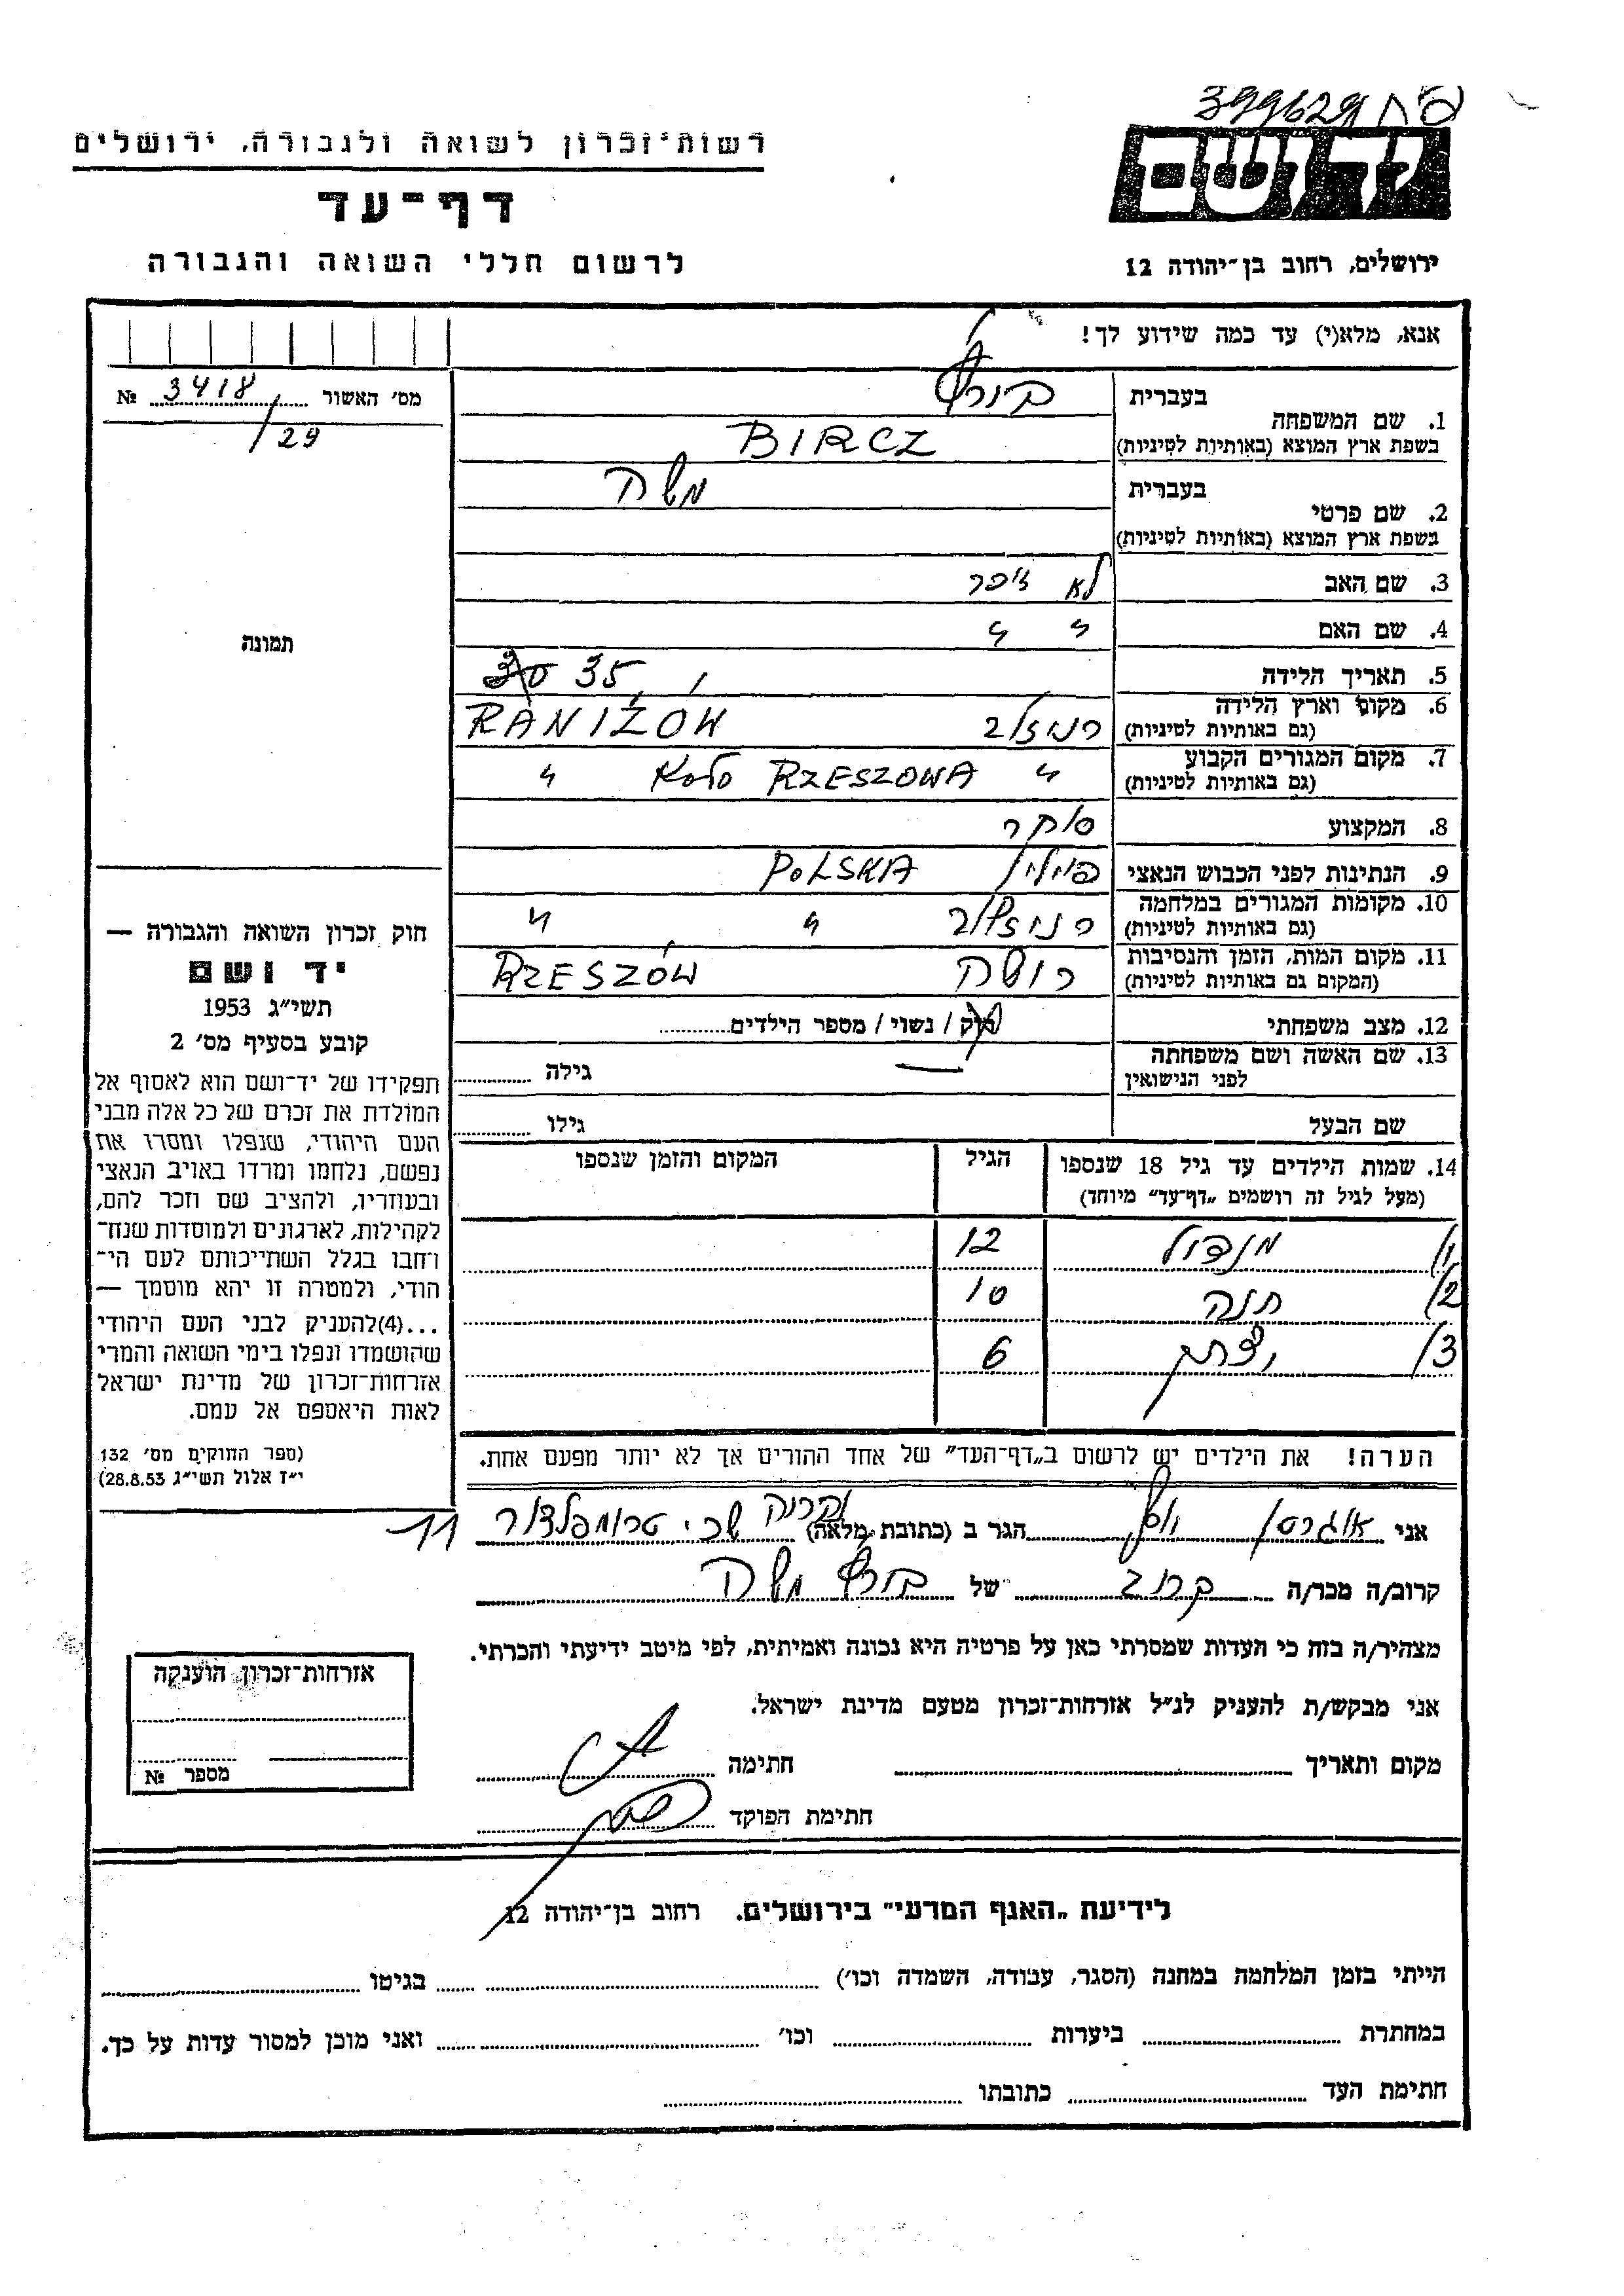 399629
רשות־זכרון לשואה ולגבורה, ירושלים
יד ושם
דף־עד
לרשום חללי השואה והגבורה
ירושלים, רחוב בן־יהודה 12
אנא, מלא(י) עד כמה שידוע לך!
מס׳ האשור 3418 №
/29
תמונה
1. שם המשפחה
בעברית
בשפת ארץ המוצא (באותיות לטיניות) BIRCZ
2. שם פרטי
בעברית משה
בשפת ארץ המוצא (באותיות לטיניות)
3. שם האב לא זיכר
4. שם האם " "
5. תאריך הלידה 35
6. מקום וארץ הלידה
(גם באותיות לטיניות) RANIŻÓW
7. מקום המגורים הקבוע
(גם באותיות לטיניות) " KOŁO RZESZOWA "
8. המקצוע סוחר
9. הנתינות לפני הכבוש הנאצי פולין POLSKA
10. מקומות המגורים במלחמה
(גם באותיות לטיניות) " "
11. מקום המות, הזמן והנסיבות
(המקום גם באותיות לטיניות) RZESZÓW
12. מצב משפחתי רוק / נשוי / מספר הילדים
13. שם האשה ושם משפחתה
לפני הנישואין — גילה
שם הבעל גילו
14. שמות הילדים עד גיל 18 שנספו הגיל המקום והזמן שנספו
(מעל לגיל זה רושמים „דף־עד” מיוחד)
1/ מנדל 12
2/ חנה 10
3/ יצחק 6
הערה! את הילדים יש לרשום ב„דף־העד” של אחד ההורים אך לא יותר מפעם אחת.
חוק זכרון השואה והגבורה —
יד ושם
תשי״ג 1953
קובע בסעיף מס׳ 2
תפקידו של יד־ושם הוא לאסוף אל
המולדת את זכרם של כל אלה מבני
העם היהודי, שנפלו ומסרו את
נפשם, נלחמו ומרדו באויב הנאצי
ובעוזריו, ולהציב שם וזכר להם,
לקהילות, לארגונים ולמוסדות שנח־
רחבו בגלל השתייכותם לעם הי־
הודי, ולמטרה זו יהא מוסמך —
...(4)להעניק לבני העם היהודי
שהושמדו ונפלו בימי השואה והמרי
אזרחות־זכרון של מדינת ישראל
לאות היאספם אל עמם.
(ספר החוקים מס׳ 132
י״ז אלול תשי״ג 28.8.53)
אני הגר ב (כתובת מלאה) טרומפלדור 11
קרוב/ה מכר/ה קרוב של משה
מצהיר/ה בזה כי העדות שמסרתי כאן על פרטיה היא נכונה ואמיתית, לפי מיטב ידיעתי והכרתי.
אני מבקש/ת להעניק לנ״ל אזרחות־זכרון מטעם מדינת ישראל.
מקום ותאריך חתימה
חתימת הפוקד
אזרחות־זכרון הוענקה
מספר №
לידיעת „האגף המדעי” בירושלים. רחוב בן־יהודה 12
הייתי בזמן המלחמה במחנה (הסגר, עבודה, השמדה וכו׳) בגיטו
במחתרת ביערות וכו׳ ואני מוכן למסור עדות על כך.
חתימת העד כתובתו